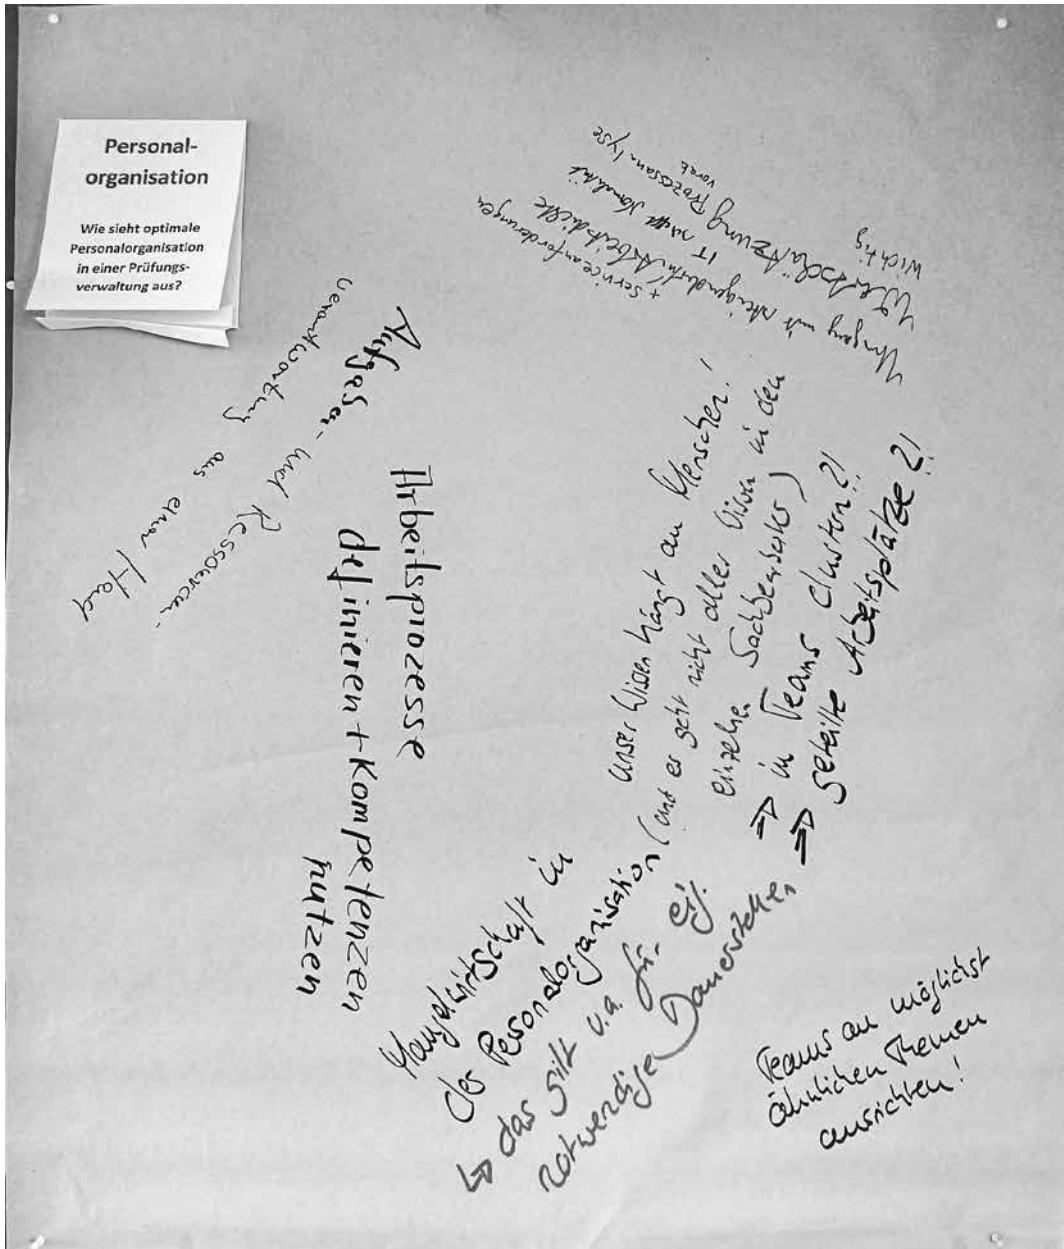 Personal-
organisation
Wie sieht optimale
Personalorganisation
in einer Prüfungs-
verwaltung aus?
Aufgaben- und Ressourcen-
verantwortung aus einer Hand
Arbeitsprozesse
definieren + Kompetenzen
nutzen
Wichtig
Wertschätzung Prozessanalyse
vorab
IT Nonchal
Umgang mit steigender Arbeitsdichte
+ Serviceanforderungen
unser Wissen hängt an Menschen!
(und es geht nicht alles Wissen in den
einzelnen Sachbearbeiter)
⇒ in Teams clustern?!
⇒ geteilte Arbeitsplätze?!
Mangelwirtschaft in
der Personalorganisation
↳ das gilt u.a. für eig.
notwendige Dauerstellen
Teams an möglichst
ähnlichen Themen
ausrichten!